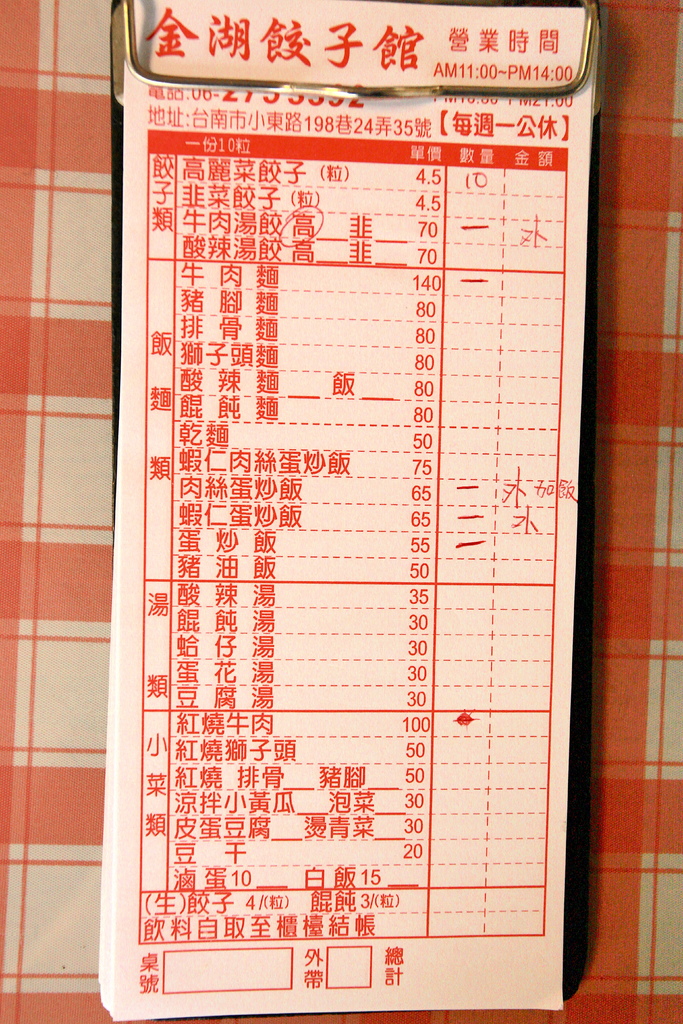 金湖餃子館 營業時間
AM11:00~PM14:00
電話:06-2753392 PM16:30~PM21:00
地址:台南市小東路198巷24弄35號【每週一公休】
一份10粒 單價 數量 金額
餃子類
高麗菜餃子(粒) 4.5 10
韭菜餃子(粒) 4.5
牛肉湯餃 高__韭__ 70 一 外
酸辣湯餃 高__韭__ 70
飯麵類
牛肉麵 140 一
豬腳麵 80
排骨麵 80
獅子頭麵 80
酸辣麵__飯__ 80
餛飩麵 80
乾麵 50
蝦仁肉絲蛋炒飯 75
肉絲蛋炒飯 65 一 外加飯
蝦仁蛋炒飯 65 一 外
蛋炒飯 55 一
豬油飯 50
湯類
酸辣湯 35
餛飩湯 30
蛤仔湯 30
蛋花湯 30
豆腐湯 30
小菜類
紅燒牛肉 100
紅燒獅子頭 50
紅燒 排骨__豬腳__ 50
涼拌小黃瓜__泡菜__ 30
皮蛋豆腐__燙青菜__ 30
豆干 20
滷蛋10__ 白飯15__
(生)餃子 4/(粒) 餛飩3/(粒)
飲料自取至櫃檯結帳
桌號 外帶 總計